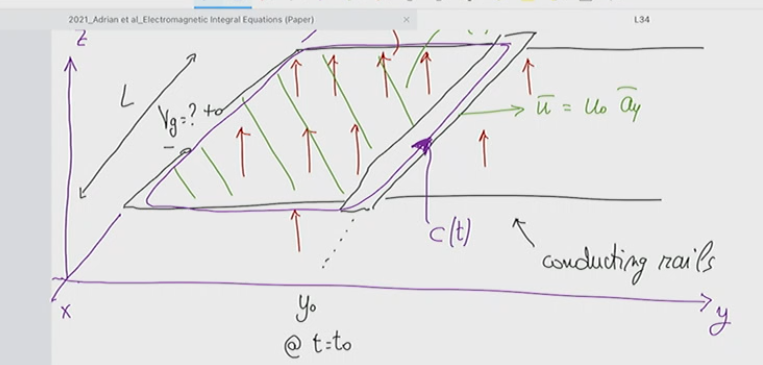 2021_Adrian et al_Electromagnetic Integral Equations (Paper) ×
L34
z
L
Vg=? +
-
ū = u₀ āy
c(t)
conducting rails
x
y₀
y
@ t=t₀